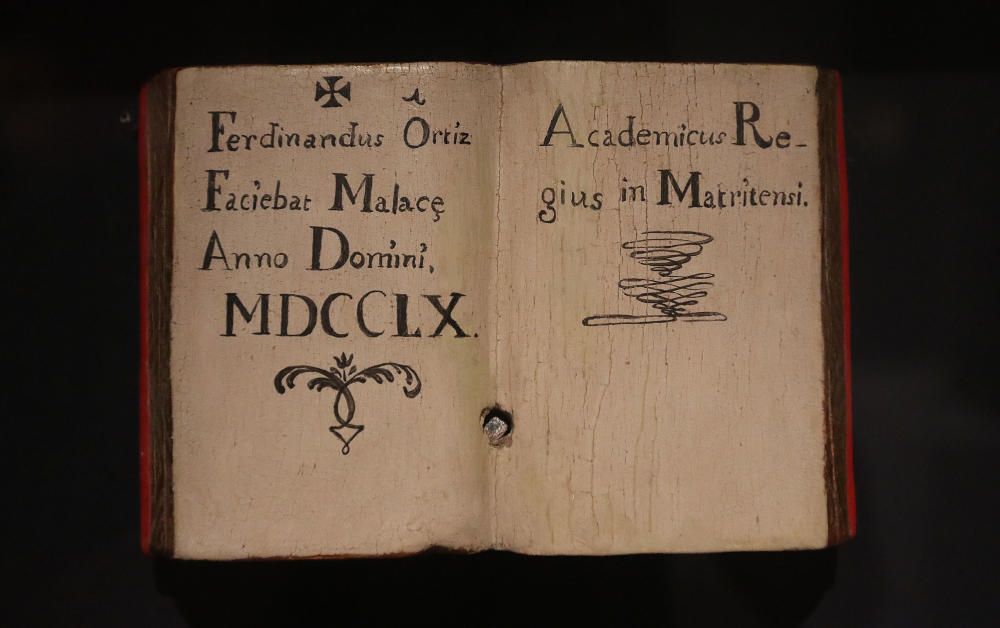 ✠
Ferdinandus Ortiz
Faciebat Malacę
Anno Domini,
MDCCLX.
Academicus Re-
gius in Matritensi.